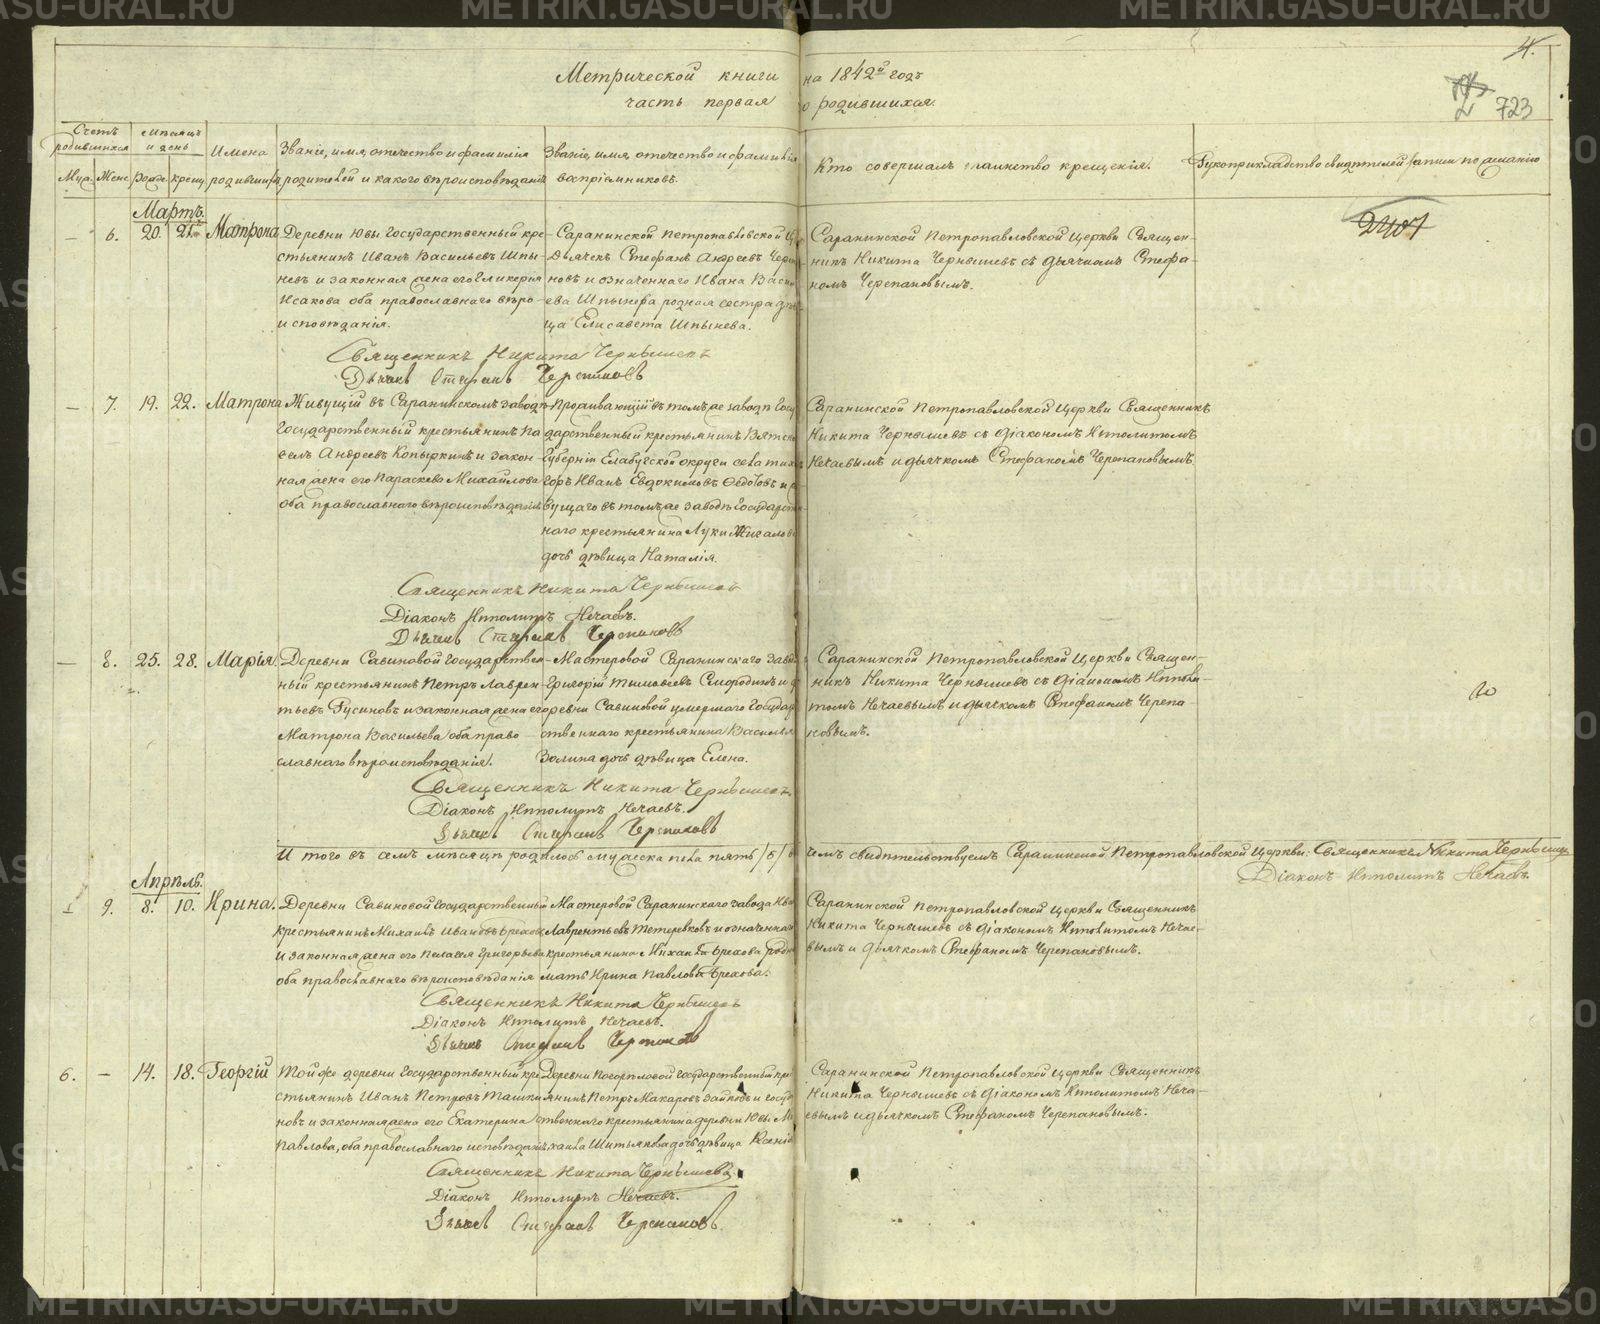 Метрической книги на 1842й годъ
часть первая о родившихся.
4.
723
Счетъ родившихся
Мѣсяцъ и день
Имена родившихся
Званіе, имя, отечество и фамилія родителей и какого вѣроисповѣданія
Званіе, имя, отечество и фамилія воспріемниковъ.
Кто совершалъ таинство крещенія.
Рукоприкладство свидѣтелей записи по желанію
Муж. Жен. рожд. крещ.
Мартъ.
— 6. 20. 21. Матрона
Деревни Ювы Государственный кре-
стьянинъ Иванъ Васильевъ Шпы-
невъ и законная жена его Гликерія
Исакова оба православнаго вѣро-
исповѣданія.
Саранинской Петропавловской Ц
Дьячекъ Стефанъ Андреевъ Череп
новъ и означеннаго Ивана Васи
ева Шпынева родная сестра дѣв
ца Елисавета Шпынева.
Саранинской Петропавловской Церкви Священ-
никъ Никита Чернышевъ съ дьячкомъ Стефа-
номъ Черепановымъ.
2407
Священникъ Никита Чернышевъ
Дьячекъ Стефанъ Черепановъ
— 7. 19. 22. Матрона
Живущій въ Саранинскомъ заводѣ
Государственный крестьянинъ Па
велъ Андреевъ Копыркинъ и закон-
ная жена его Параскева Михайлова
оба православнаго вѣроисповѣданія
Проживающій въ томъ же заводѣ Госу
дарственный крестьянинъ Вятско
Губерніи Елабугской округи села
Иванъ Евдокимовъ Ѳедотовъ и
вущаго въ томъ же заводѣ Государств
наго крестьянина Луки Жигалова
дочь дѣвица Наталія.
Саранинской Петропавловской Церкви Священникъ
Никита Чернышевъ съ діакономъ Ипполитомъ
Нечаевымъ и дьячкомъ Стефаномъ Черепановымъ
Священникъ Никита Чернышевъ
Діаконъ Ипполитъ Нечаевъ.
Дьячекъ Стефанъ Черепановъ
— 8. 25. 28. Марія.
Деревни Савиновой Государствен-
ный крестьянинъ Петръ Лаврен-
тьевъ Русиновъ и законная жена его
Матрона Васильева оба право
славнаго вѣроисповѣданія.
Мастеровой Саранинскаго Заво
Григорій Тимофеевъ Смородинъ и д
ревни Савиновой умершаго Государ
ственнаго крестьянина Василья
Золина дочь дѣвица Елена.
Саранинской Петропавловской Церкви Священ-
никъ Никита Чернышевъ съ діакономъ Иппол-
томъ Нечаевымъ и дьячкомъ Стефаномъ Черепа-
новымъ.
Священникъ Никита Чернышевъ
Діаконъ Ипполитъ Нечаевъ.
Дьячекъ Стефанъ Черепановъ
И того въ семъ мѣсяцѣ родилось мужеска пола пять /5/
чемъ свидѣтельствуемъ Саранинской Петропавловской Церкви: Священникъ Никита Чернышевъ
Діаконъ Ипполитъ Нечаевъ.
Апрѣль.
9. 8. 10. Ирина.
Деревни Савиновой Государственный
крестьянинъ Михаилъ Ивановъ Ореховъ
и законная жена его Пелагея Григорьева
оба православнаго вѣроисповѣданія
Мастеровой Саранинскаго Завода Ива
Лаврентьевъ Тетеревковъ и означеннаго
крестьянина Михаила Орехова родн
мать Ирина Павлова Орехова.
Саранинской Петропавловской Церкви Священникъ
Никита Чернышевъ съ діакономъ Ипполитомъ Нечае-
вымъ и дьячкомъ Стефаномъ Черепановымъ.
Священникъ Никита Чернышевъ
Діаконъ Ипполитъ Нечаевъ.
Дьячекъ Стефанъ Черепановъ
6. — 14. 18. Георгій
Той же деревни Государственный кре
стьянинъ Иванъ Петровъ Ташки
новъ и законная жена его Екатерина
Павлова, оба православнаго исповѣданія
Деревни Государственный кре
янинъ Петръ Макаровъ Зайковъ и госуд
ственнаго крестьянина деревни Ювы Ми
хаила Шитьякова дочь дѣвица Ксенія
Саранинской Петропавловской Церкви Священникъ
Никита Чернышевъ съ діакономъ Ипполитомъ Неча-
евымъ и дьячкомъ Стефаномъ Черепановымъ.
Священникъ Никита Чернышевъ.
Діаконъ Ипполитъ Нечаевъ.
Дьячекъ Стефанъ Черепановъ.
METRIKI.GASU-URAL.RU